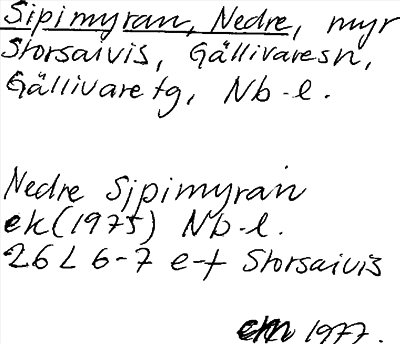 Sipimyran, Nedre, myr
Storsaivis, Gällivare sn,
Gällivare tg, Nb-l.
Nedre Sjpimyran
ek (1975) Nb-l.
26 L 6-7 e-f Storsaivis
1977.